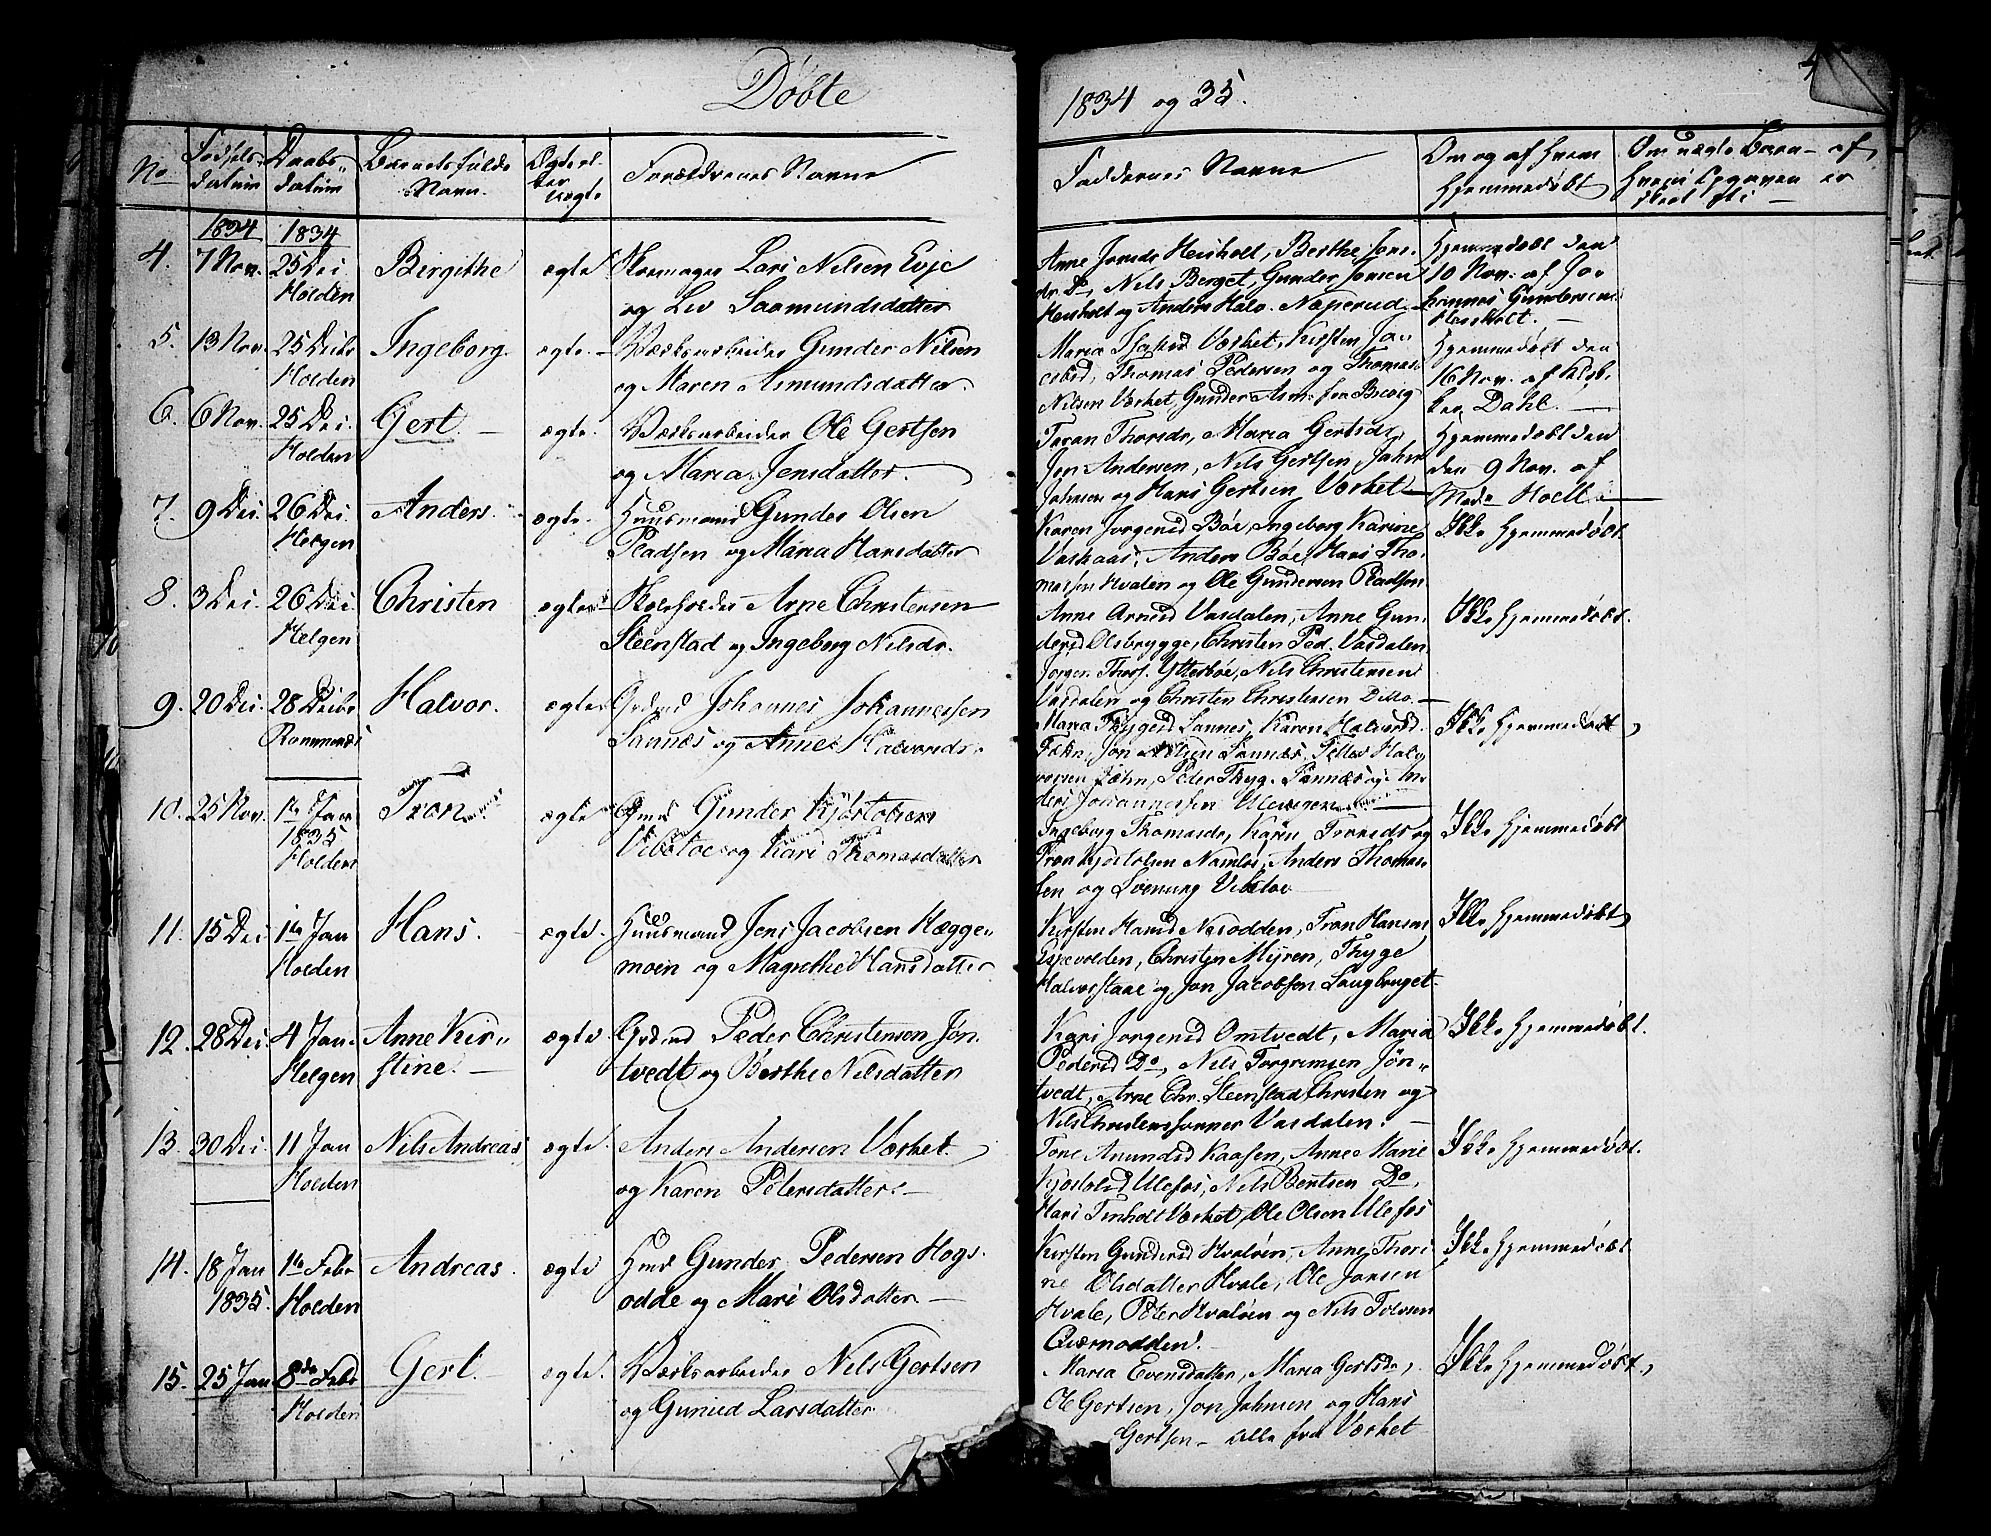 Döbte
1834 og 35.
No
Födsels-
datum
Daabs-
datum
Barnets fulde
Navn.
Ægte el-
ler
uægte
Forældrenes Navne
Faddernes Navne
Om og af hvem
hjemmedöbt
Om uægte Barn - af
hvem Opgaven er
skeet
1834
1834
4. 7 Nov. 25 Dec. Birgithe ægte Lars Nilsen Evje
Holden
og Liv Saamundsdatter
Anne Jonsdr Heisholt, Berthe Jens-
dr Do, Nils Berget, Gunder Jensen
Heisholt og Anders Halv. Naperud
Hjemmedöbt den
10 Nov. af Jo-
hannes Gundersen
Heisholt.
5. 13 Nov. 25 Decbr Ingeborg. ægte Værksarbeider Gunder Nilsen
Holden
og Maren Asmundsdatter
Maria Værket, Kirsten
Thomas Pedersen og Thomas
Nilsen Værket, Gunder Asm. fra Brevig
Hjemmedöbt den
16 Nov. af
Dahl.
6. 6 Nov. 25 Dec. Gert. ægte. Værksarbeider Ole Gertsen
Holden
og Maria Jensdatter.
Taran Thorsdr, Maria Gertsdr
Jon Andersen, Nils Gertsen, John
Johnsen og Hans Gertsen Værket
Hjemmedöbt den
den 9 Nov. af
Mad. Hoell.
7. 9 Dec. 26 Dec. Anders. ægte. Huusmand Gunder Olsen
Helgen
Pladsen og Maria Hansdatter
Karen Jorgensd Böe, Ingeborg Karine
Vaskaas, Anders Böe, Hans Tho-
massen Hvalen og Ole Gundersen Pladsen
Ikke hjemmedöbt
8. 3 Dec. 26 Dec. Christen ægte Skoleholder Arne Christensen
Helgen
Steenstad og Ingeborg Nilsdr.
Anne Arnesd Vasdalen, Anne Gun-
dersd Olsbrygge, Christen Ped. Vasdalen
Jorgen Thors. Ytterböe, Nils Christensen
Vasdalen og Christen Christensen Ditto.
Ikke hjemmedöbt.
9. 20 Dec. 28 Decbr Halvor. ægte Grdmd Johannes Johannessen
Romnæs
Sannæs og Anne Halvorsdr.
Maria Thygesd Sannes, Karen Halvorsd
Jon Nilsen Sannæs, Tellef Halv-
orsen Peder Thyg. Sannæs og An-
ders Johannessen Ulevigen
Ikke hjemmedöbt
10. 25 Nov. 1te Jan Tron ægte Gmd Gunder Kjöstolsen
1835
Holden
Vibetoe og Kari Thomasdatter
Ingeborg Thomasdr, Karen Tronsdr og
Tron Kjöstolsen Namlös, Anders Thomas-
sen og Svenung Vibetoe
Ikke hjemmedöbt
11. 15 Dec 1te Jan Hans. ægte. Huusmand Jens Jacobsen Hægge-
Holden
moen og Magrethe Hansdatter
Kirsten Hansd Nesodden, Tron Hansen
Espevolden, Christen Myren, Thyge
Halvorstaae og Jon Jacobsen Langbruget.
Ikke hjemmedöbt
12. 28 Dec. 4 Jan. Anne Kir- ægte Grdmd Peder Christensen Jön-
Helgen
stine.
tvedt og Berthe Nilsdatter
Kari Jorgensd Omtvedt, Maria
Pedersd Do, Nils Torgrimsen Jön-
tvedt, Arne Chr. Steenstad Christen og
Nils Christenssönner Vasdalen.
Ikke hjemmedöbt.
13. 30 Dec. 11 Jan Nils Andreas ægte. Anders Andersen Værket.
Holden
og Karen Petersdatter.
Tone Amundsd Kaasen, Anne Marie
Kjöstolsd Ulefos, Nils Bentsen Do,
Hans Tinholt Værket, Ole Olsen Ulefos
Ikke hjemmedöbt.
14. 18 Jan 1te Febr Andreas. ægte Hmd Gunder Pedersen Hogs-
1835. Holden
odde og Mari Olsdatter
Kirsten Gundersd Hvalöen, Anne Thori-
ne Olsdatter Hvale, Ole Jonsen
Hvale, Peter Hvalöen og Nils Tolvsen
Qværnodden.
Ikke hjemmedöbt
15. 25 Jan 8de Febr Gert. ægte. Værksarbeider Nils Gertsen
Holden
og Gunild Larsdatter
Maria Evensdatter, Maria Gertsdr,
Ole Gertsen, Jon Johnsen og Hans
Gertsen - alle fra Værket
Ikke hjemmedöbt,